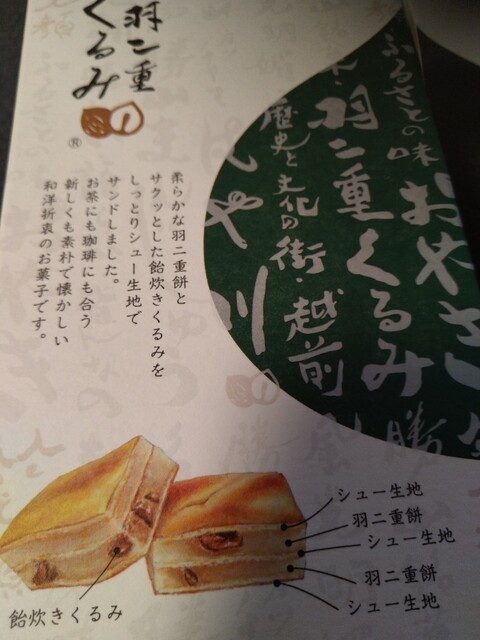 羽二重
くるみ
®
柔らかな羽二重餅と
サクッとした飴炊きくるみを
しっとりシュー生地で
サンドしました。
お茶にも珈琲にも合う
新しくも素朴で懐かしい
和洋折衷のお菓子です。
ふるさとの味
おやさ
羽二重くるみ
歴史と文化の街・越前
シュー生地
羽二重餅
シュー生地
羽二重餅
シュー生地
飴炊きくるみ